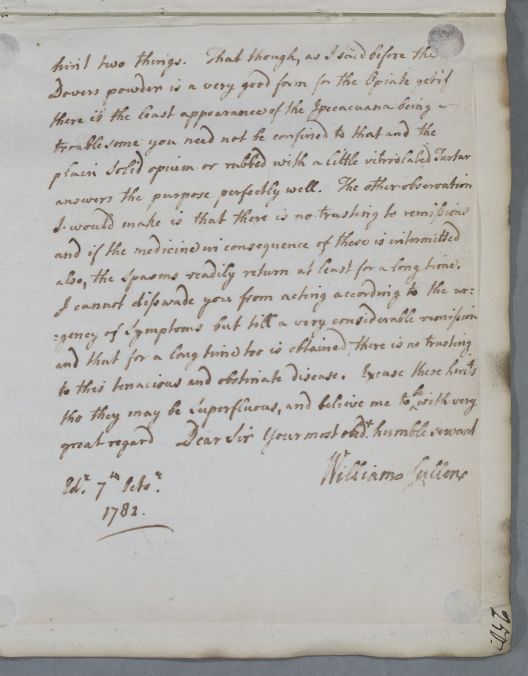 hint two things. That though, as I said before the
Dovers powder is a very good form for the Opiate yet if
there is the least appearance of the Ipecacuana being
troublesome you need not be confined to that and the
plain Solid opium or rubbed with a little vitriolated Tartar
answers the purpose perfectly well. The other observation
I would make is that there is no trusting to remissions
and if the medicine in consequence of these is intermitted
also, the Spasms readily return at least for a long time.
I cannot disswade you from acting according to the ur=
=gency of Symptoms but till a very considerable remission
and that for a long time too is obtained there is no trusting
to this tenacious and obstinate disease. Excuse these hints
tho they may be Superfluous, and believe me to be with very
great regard Dear Sir Your most obedt. humble servant
William Cullen
Edr. 7th Octor.
1782.